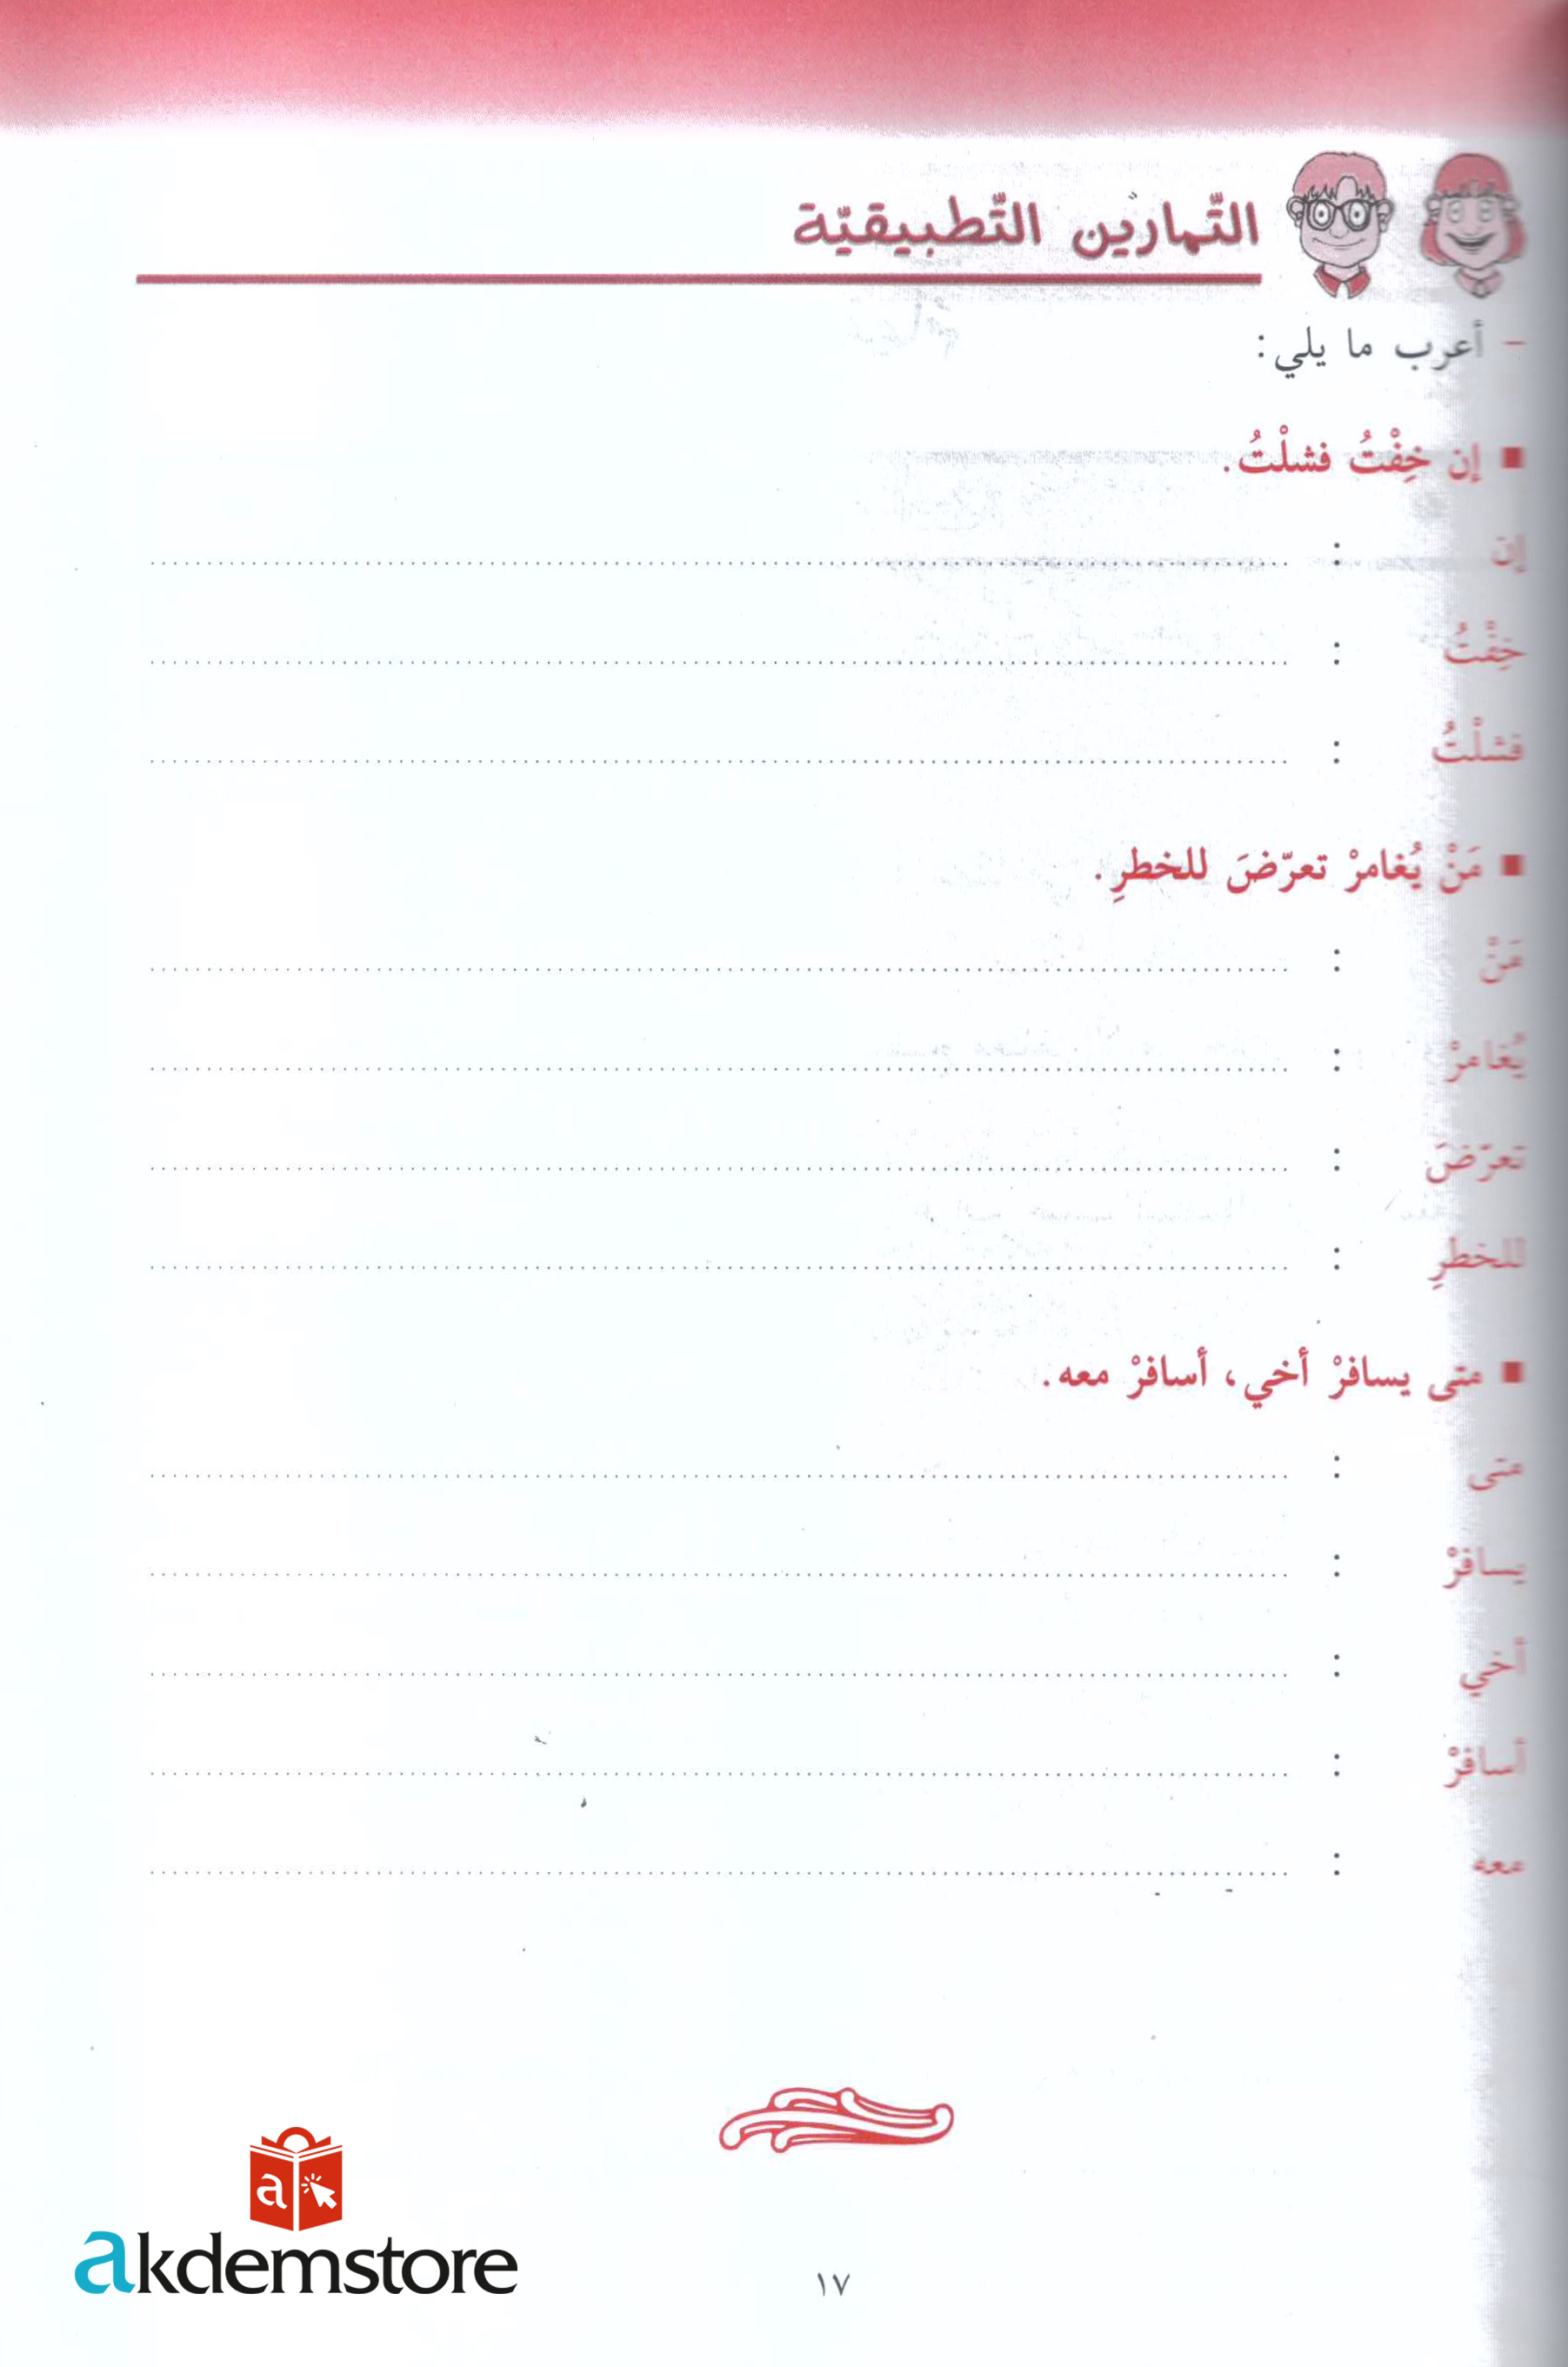 التّمارين التّطبيقيّة
– أعرب ما يلي:
■ إن خِفْتُ فشلْتُ.
إن :
خِفْتُ :
فشلْتُ :
■ مَنْ يُغامرْ تعرّضَ للخطرِ.
مَنْ :
يُغامرْ :
تعرّضَ :
للخطرِ :
■ متى يسافرْ أخي، أسافرْ معه.
متى :
يسافرْ :
أخي :
أسافرْ :
معه :
a
akdemstore
١٧